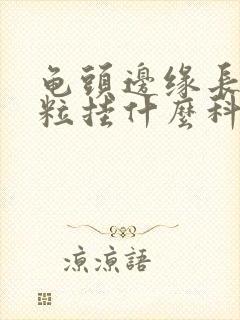 龟頭邊缘長
粒挂什麼科
涼涼語